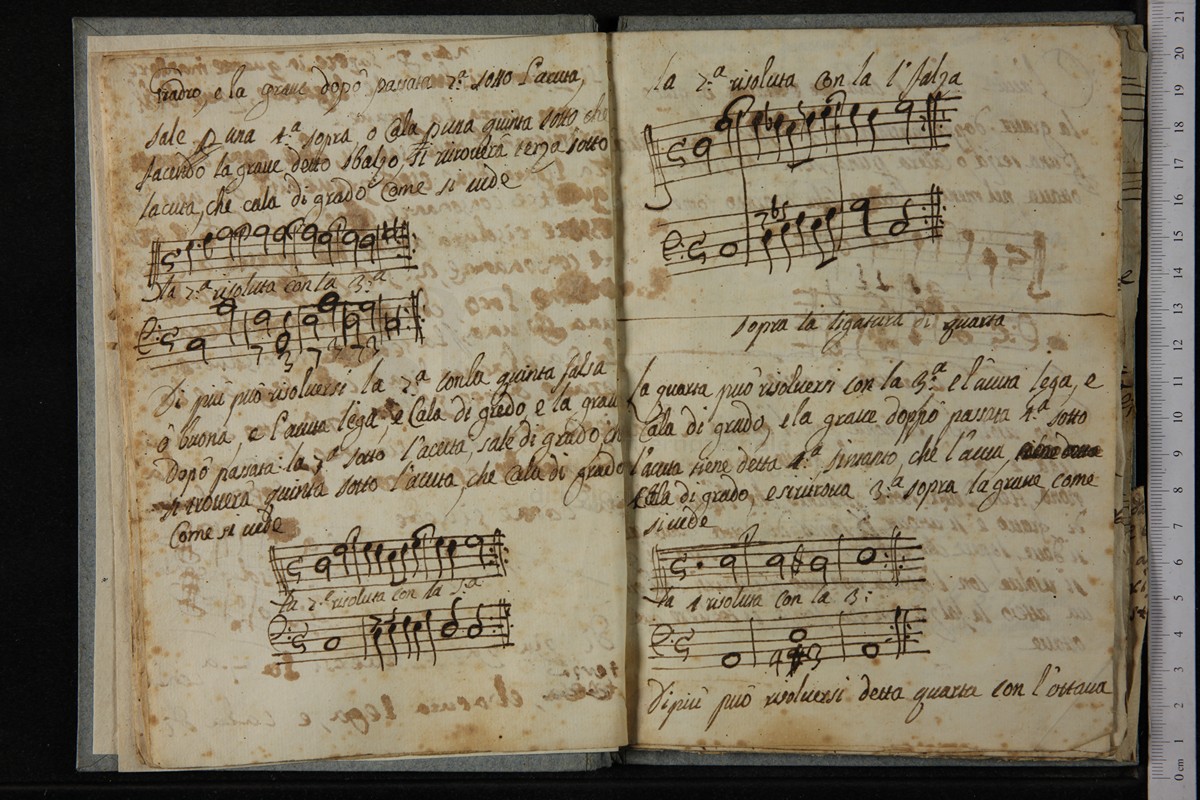 grado, e la grave dopò passata 7.ª sotto l'acuta,
sale p una 4.ª sopra o Cala p una quinta sotto che
facendo la grave detto sbalzo, si ritroverà terza sotto
l'acuta, che cala di grado Come si vede
la 7.ª risoluta con la 3.ª
7 3 7 3 7 3
Di più può risolversi la 7.ª con la quinta falsa
ò buona, e l'acuta lega, e Cala di grado, e la grave
dopò passata la 7.ª sotto l'acuta, sale di grado, ch
si troverà quinta sotto l'acuta, che Cala di grado
Come si vede
la 7.ª risoluta con la 5.ª
7 5
la 7.ª risoluta con la 5.ª falza
7 b5
sopra la ligatura di quarta
la quarta può risolversi con la 3.ª e l'acuta lega, e
Cala di grado, e la grave doppò passata 4.ª sotto
l'acuta tiene detta 4.ª sintanto, che l'acuta
Cala di grado, e si ritrova 3.ª sopra la grave come
si vede
la 4 risoluta con la 3.ª
4 #3
Di più può risolversi detta quarta con l'ottava